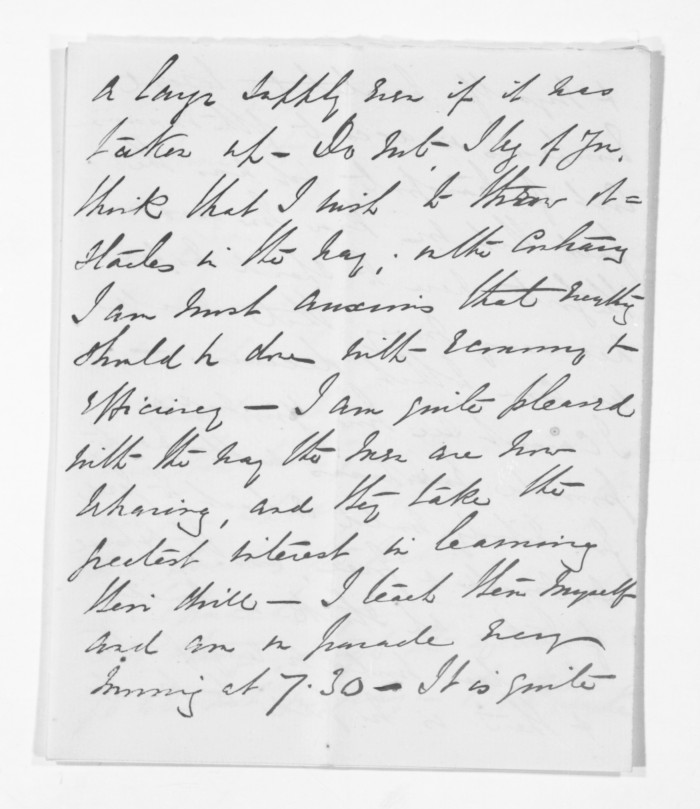 a large supply even if it was
taken up – Do not, I beg of you,
think that I wish to throw ob=
stacles in the way; on the contrary
I am most anxious that everything
should be done with economy &
efficiency – I am quite pleased
with the way the men are now
behaving, and they take the
greatest interest in learning
their drill – I teach them myself
and am on parade every
morning at 7.30 – It is quite